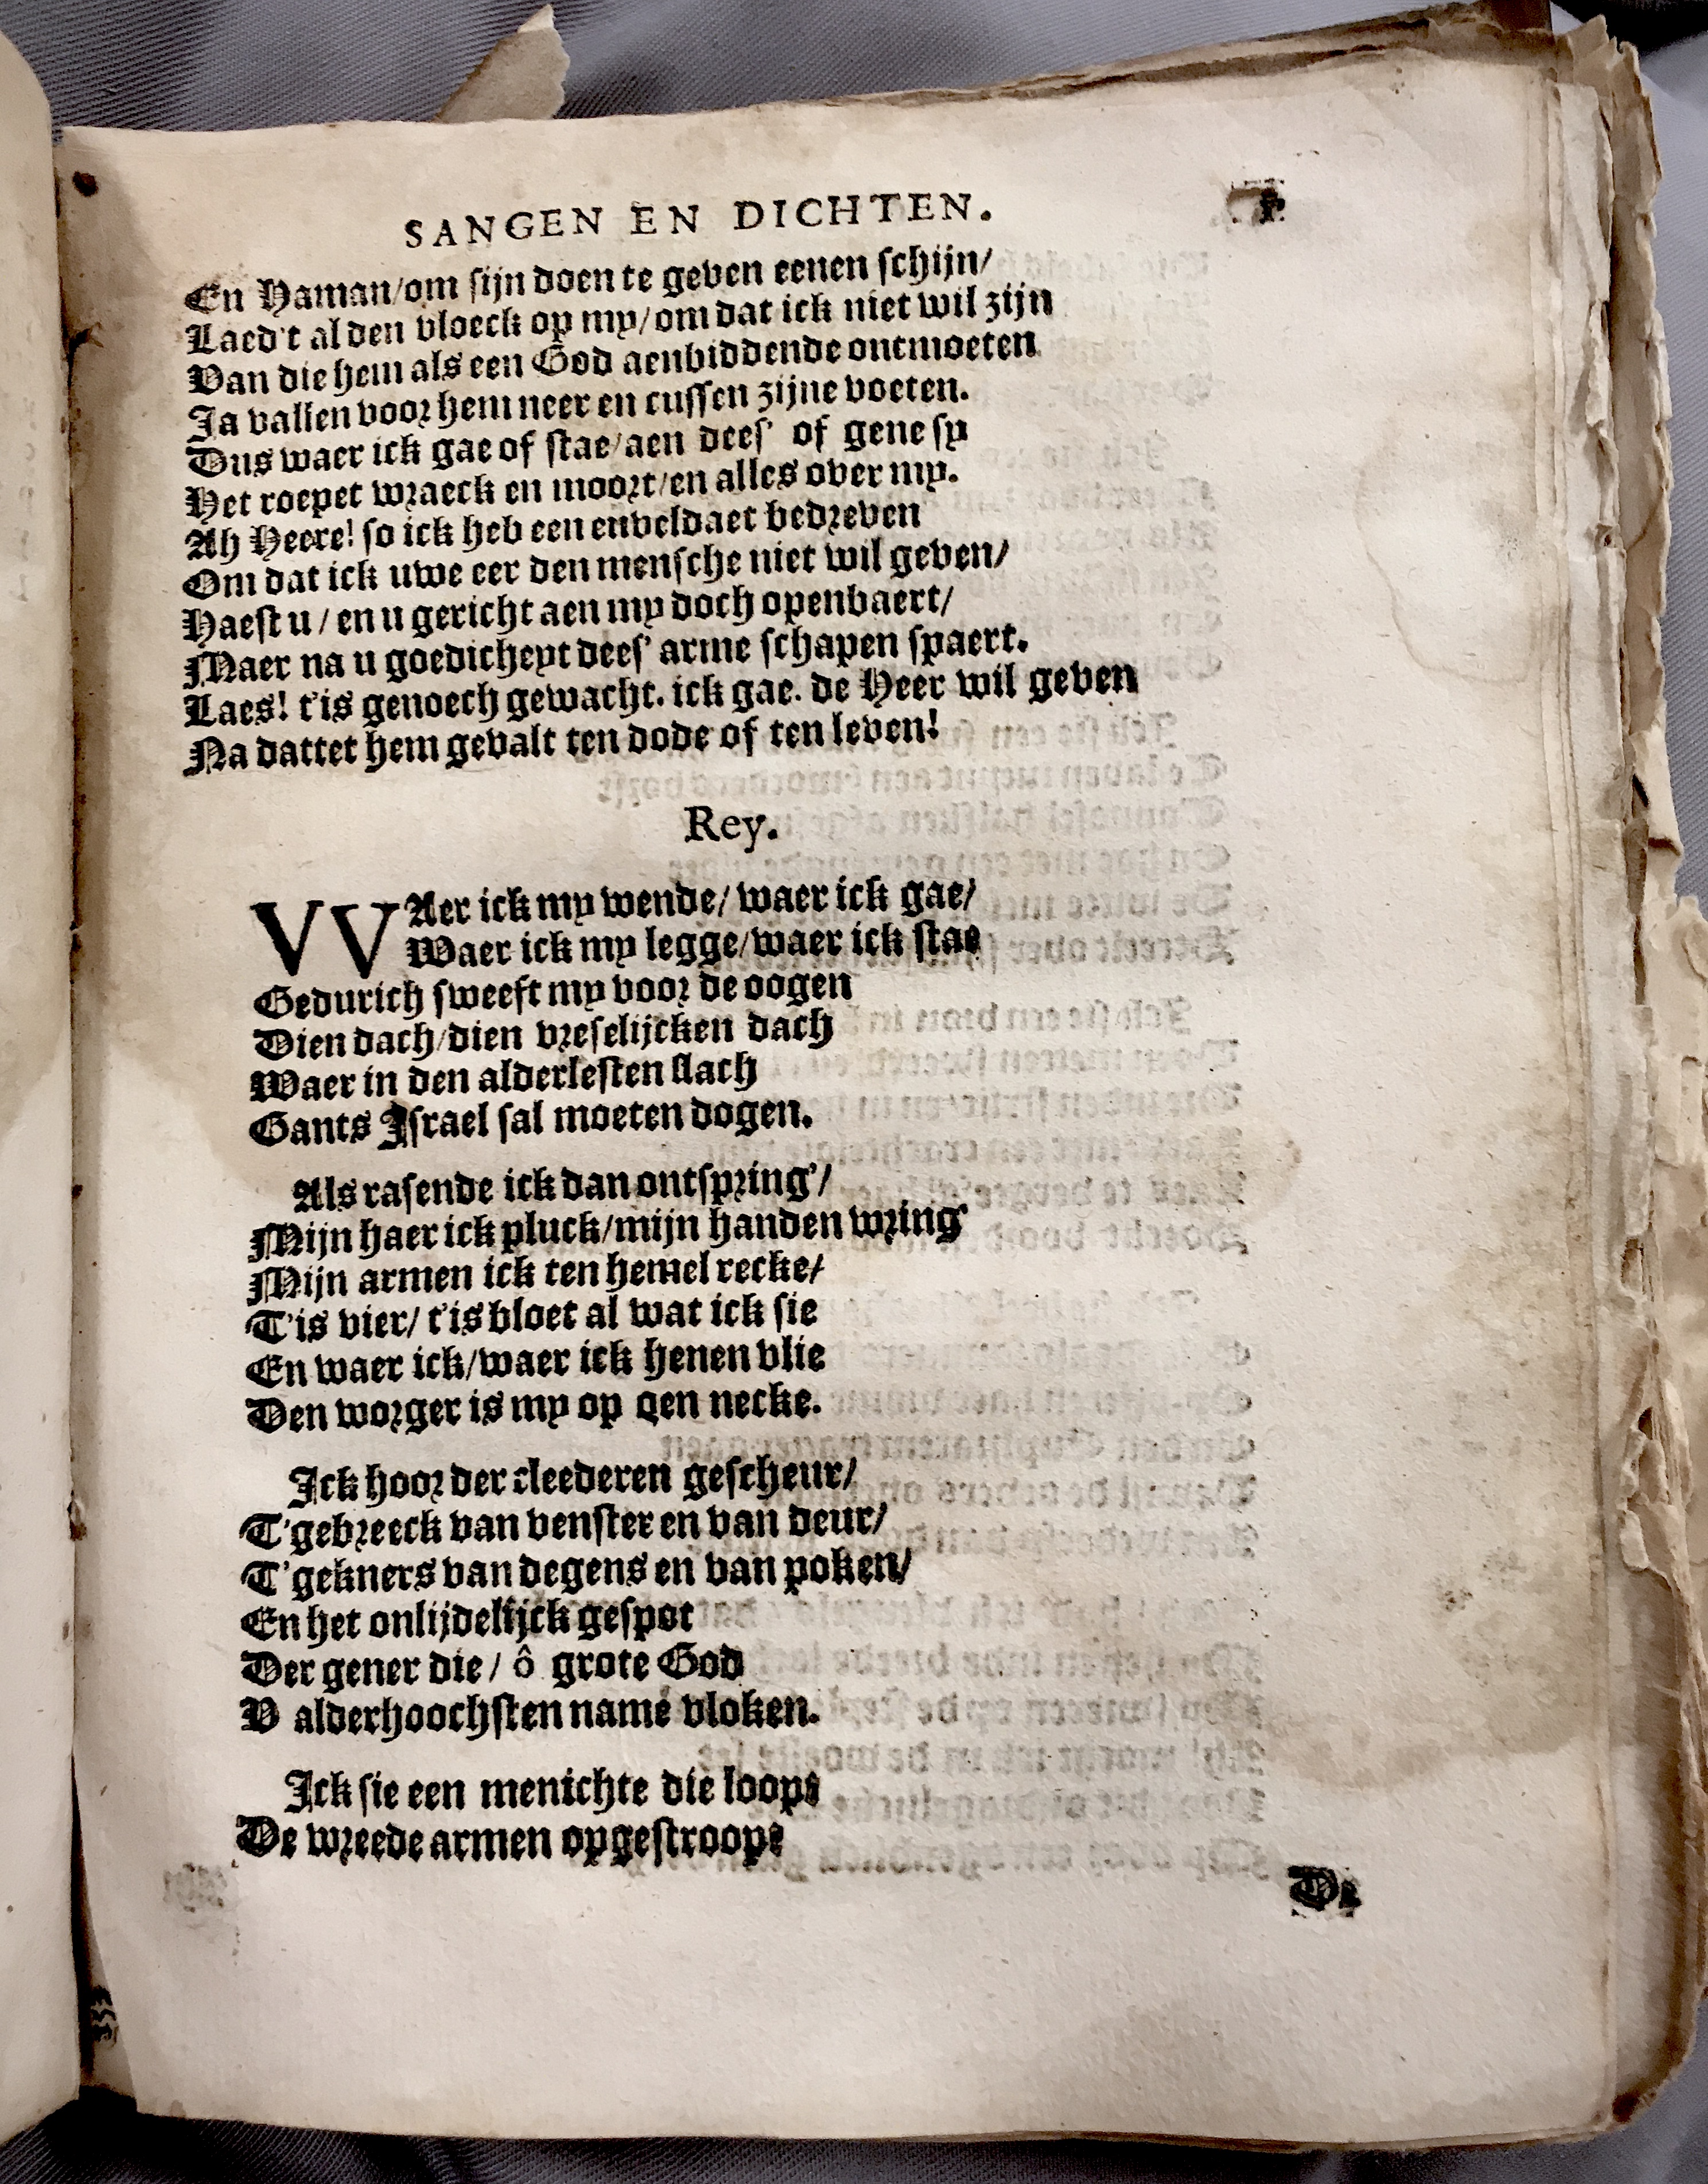 SANGEN EN DICHTEN.
En Haman/om sijn doen te geven eenen schijn/
Laed't al den vloeck op my/om dat ick niet wil zijn
Van die hem als een God aenbiddende ontmoeten
Ja vallen voor hem neer en cussen zijne voeten.
Dus waer ick gae of stae/aen dees' of gene sy
Het roepet wraeck en moort/en alles over my.
Ah Heere! so ick heb een euveldaet bedreven
Om dat ick uwe eer den mensche niet wil geven/
Haest u/ en u gericht aen my doch openbaert/
Maer na u goedicheyt dees' arme schapen spaert.
Laes! t'is genoech gewacht. ick gae. de Heer wil geven
Na dattet hem gevalt ten dode of ten leven!
Rey.
VVAer ick my wende/ waer ick gae/
Waer ick my legge/waer ick stae
Gedurich sweeft my voor de oogen
Dien dach/dien vreselijcken dach
Waer in den alderlesten slach
Gants Israel sal moeten dogen.
Als rasende ick dan ontspring'/
Mijn haer ick pluck/mijn handen wring'
Mijn armen ick ten hemel recke/
T'is vier/ t'is bloet al wat ick sie
En waer ick/waer ick henen vlie
Den worger is my op den necke.
Ick hoor der cleederen gescheur/
T'gebreeck van venster en van deur/
T'gekners van degens en van poken/
En het onlijdelijck gespot
Der gener die/ ô grote God
V alderhoochsten name vloken.
Ick sie een menichte die loopt
De wreede armen opgestroopt
De